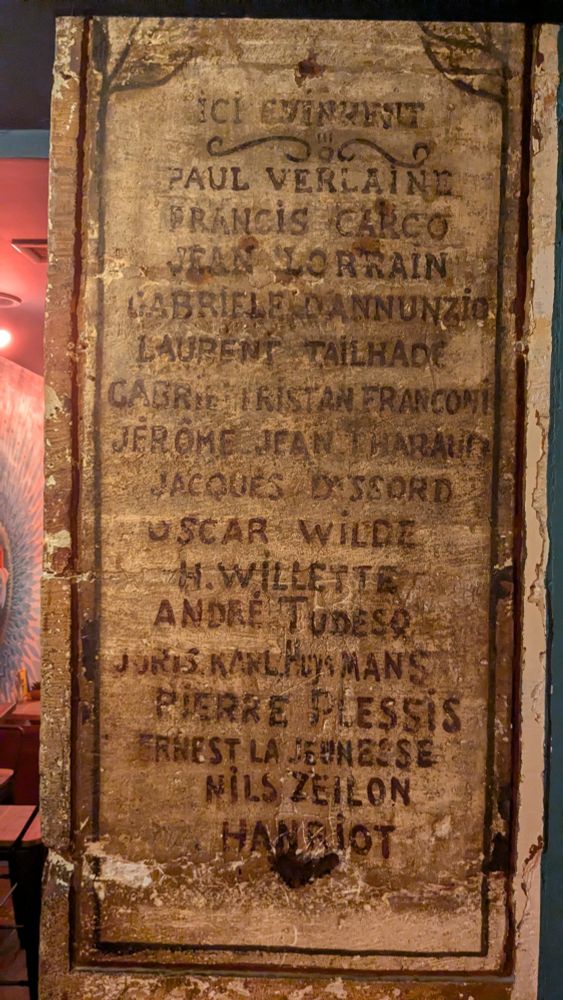 iCi EVINRENT
PAUL VERLAINE
FRANCIS CARCO
JEAN LORRAIN
GABRIELE DANNUNZIO
LAURENT TAILHADE
GABRIEL TRISTAN FRANCONI
JÉRÔME JEAN THARAUD
JACQUES DYSSORD
OSCAR WILDE
H. WILLETTE
ANDRÉ TUDESQ
JORIS. KARL. HUYSMANS
PIERRE PLESSIS
ERNEST LA JEUNESSE
NILS ZEILON
HANRIOT